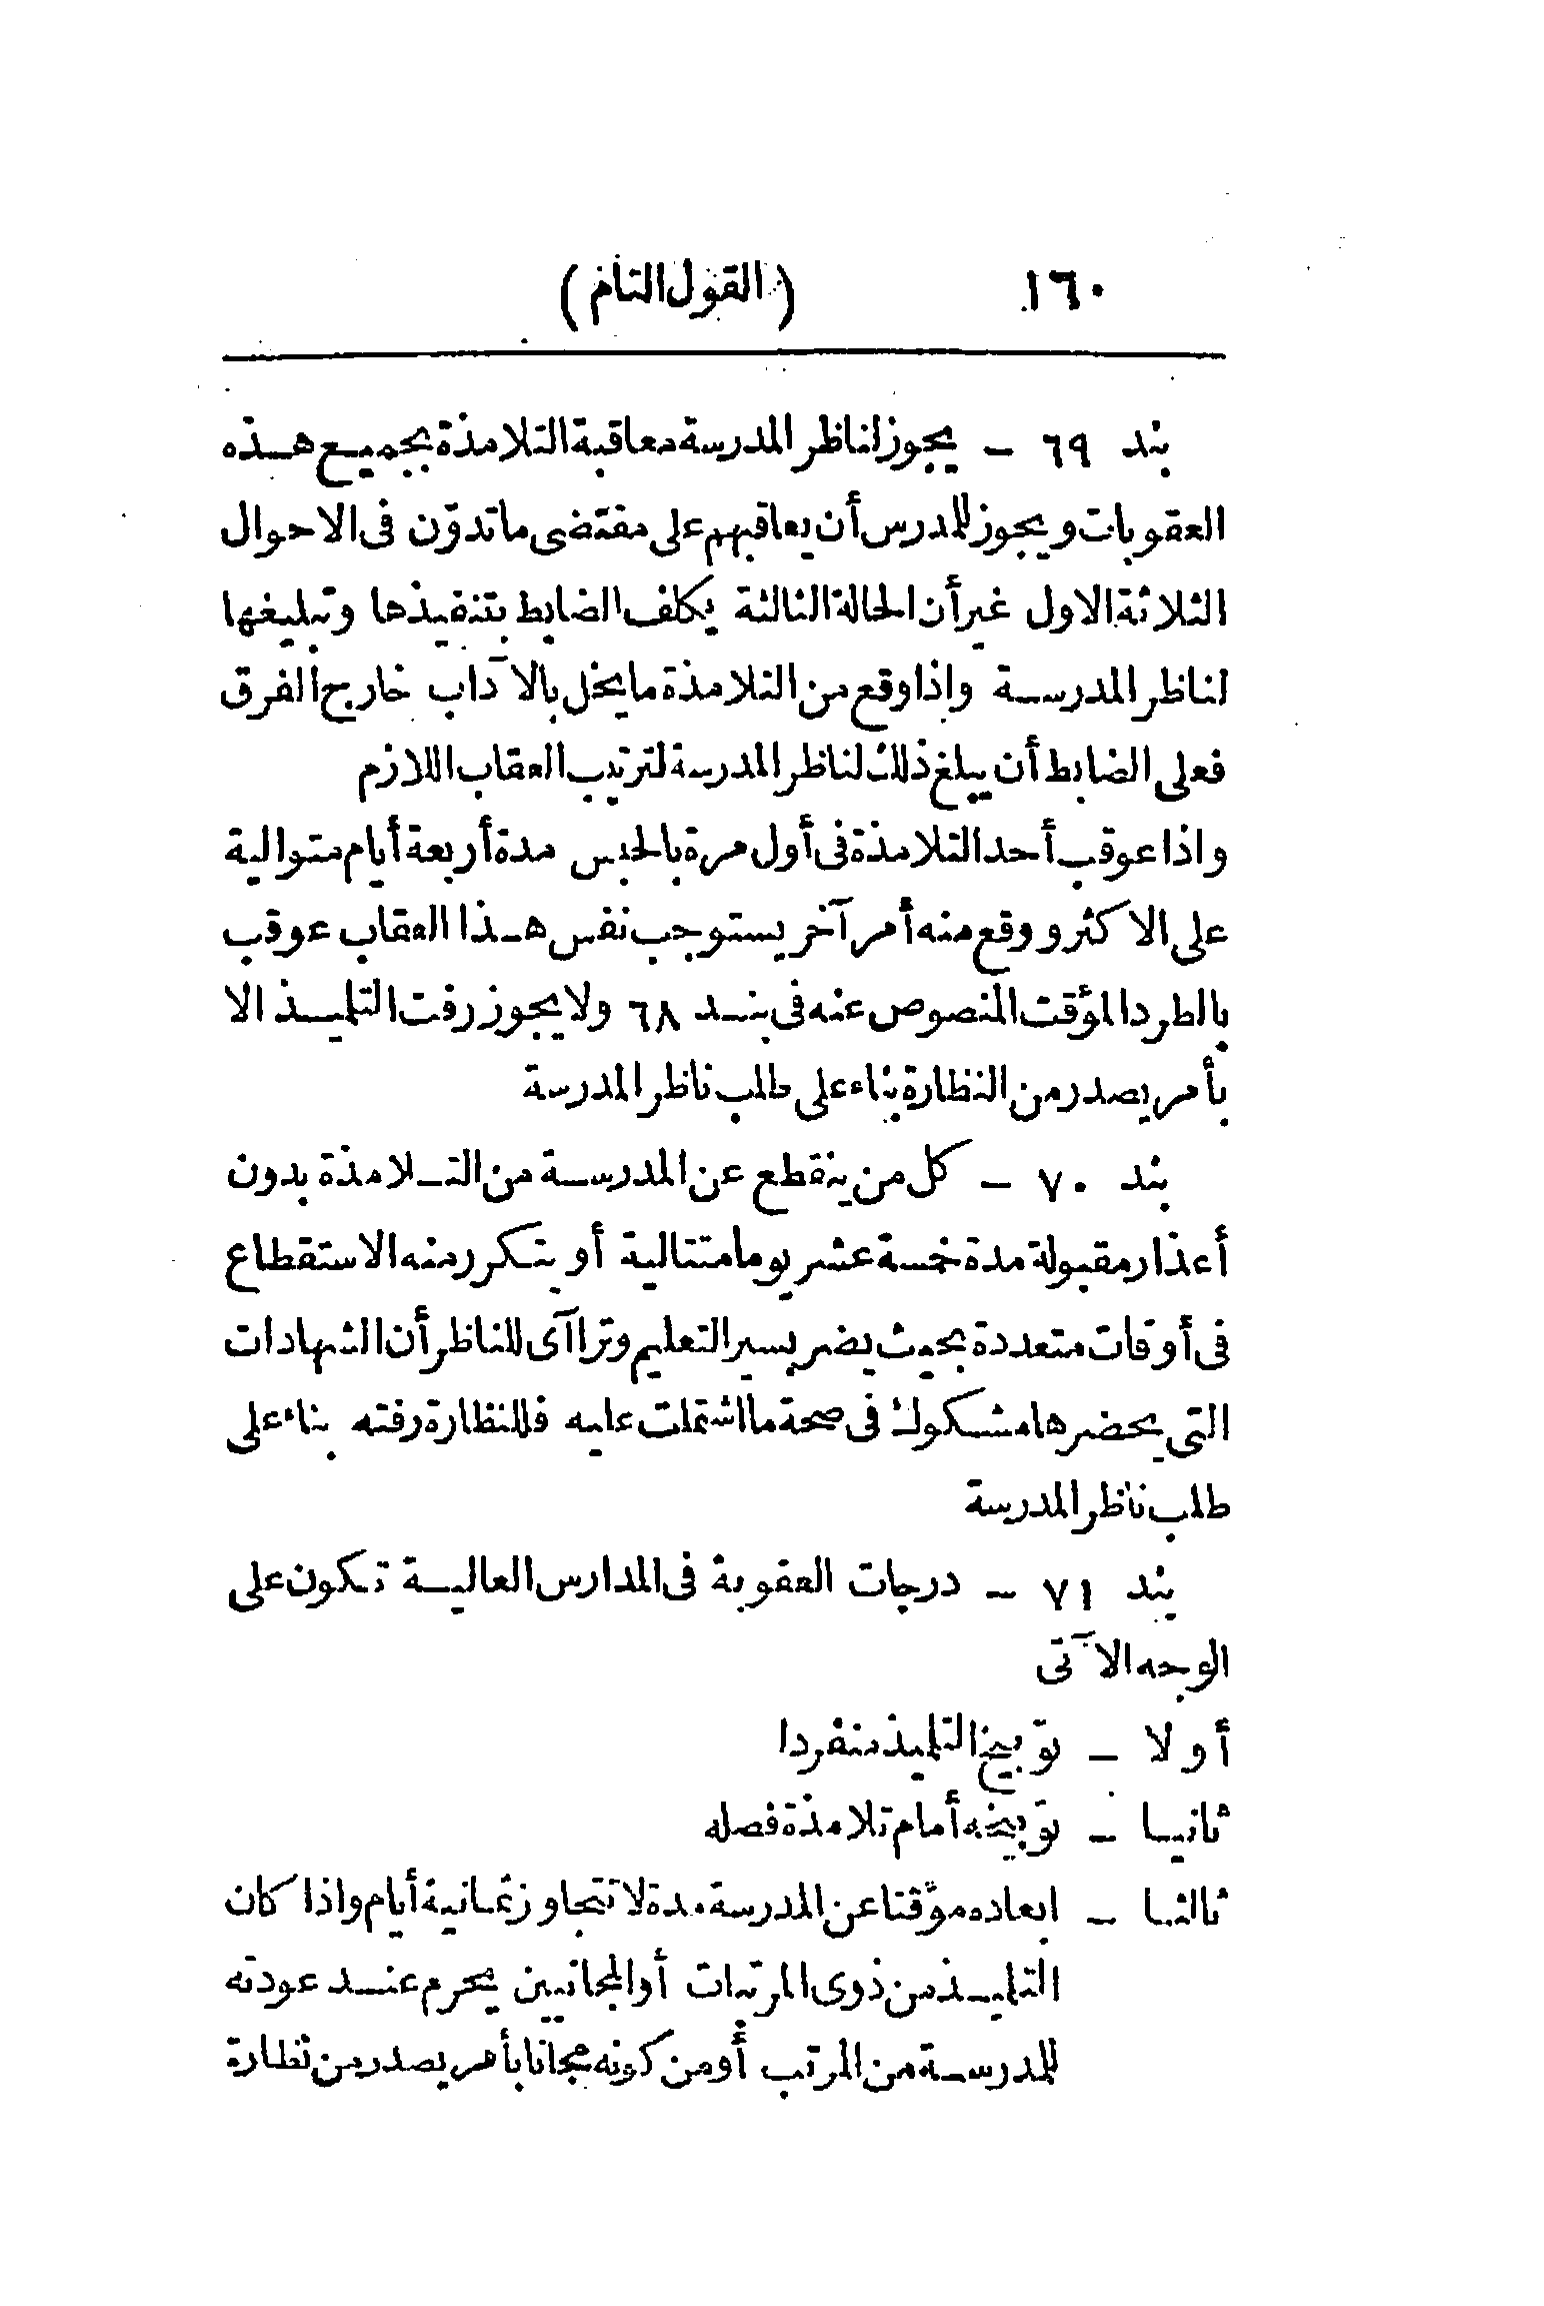 ١٦٠ (القول التام)
بند ٦٩ – يجوز لناظر المدرسة معاقبة التلامذة بجميع هذه
العقوبات ويجوز للمدرس أن يعاقبهم على مقتضى ما تدوّن فى الاحوال
الثلاثة الاول غير أن الحالة الثالثة يكلف الضابط بتنفيذها وتبليغها
لناظر المدرسة واذا وقع من التلامذة ما يخل بالآداب خارج الفرق
فعلى الضابط أن يبلغ ذلك لناظر المدرسة لترتيب العقاب اللازم
واذا عوقب أحد التلامذة فى أول مرة بالحبس مدة أربعة أيام متوالية
على الاكثر ووقع منه أمر آخر يستوجب نفس هذا العقاب عوقب
بالطرد المؤقت المنصوص عنه فى بند ٦٨ ولا يجوز رفت التلميذ الا
بأمر يصدر من النظارة بناء على طلب ناظر المدرسة
بند ٧٠ – كل من ينقطع عن المدرسة من التلامذة بدون
أعذار مقبولة مدة خمسة عشر يوما متتالية أو يتكرر منه الاستقطاع
فى أوقات متعددة بحيث يضر بسير التعليم وتراآى للناظر أن الشهادات
التى يحضرها مشكوك فى صحة ما اشتملت عليه فللنظارة رفته بناء على
طلب ناظر المدرسة
بند ٧١ – درجات العقوبة فى المدارس العالية تكون على
الوجه الآتى
أولا – توبيخ التلميذ منفردا
ثانيا – توبيخه أمام تلامذة فصله
ثالثا – ابعاده مؤقتا عن المدرسة مدة لا تتجاوز ثمانية أيام واذا كان
التلميذ من ذوى المرتبات أو المجانيين يحرم عند عودته
للمدرسة من المرتب أو من كونه مجانا بأمر يصدر من نظارة